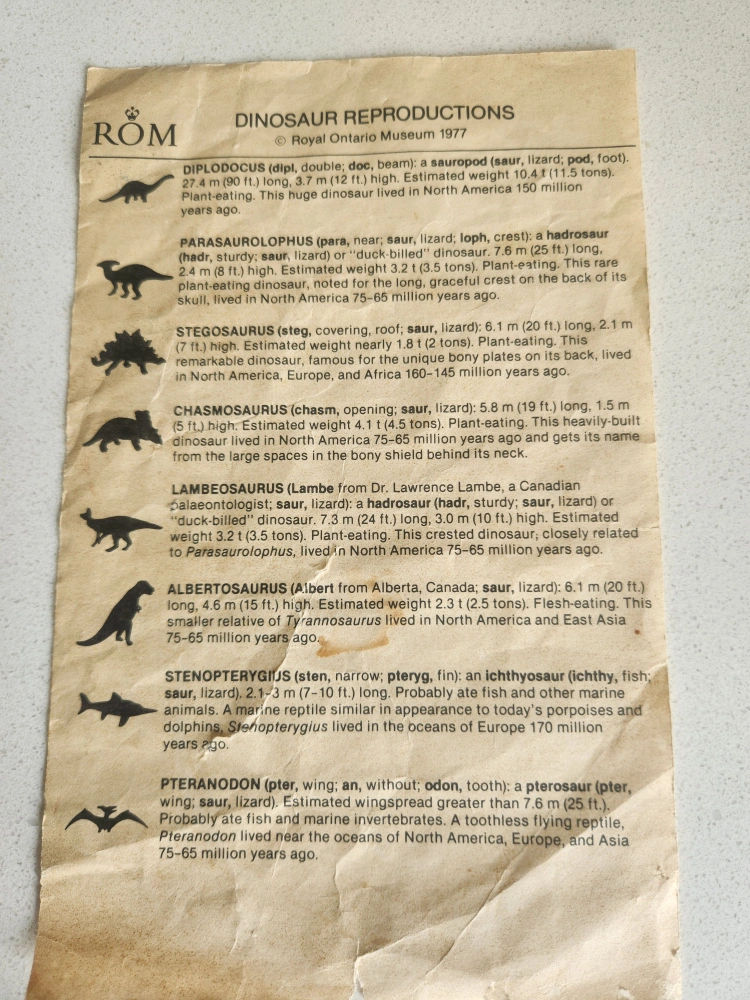 ROM
DINOSAUR REPRODUCTIONS
© Royal Ontario Museum 1977
DIPLODOCUS (dipl, double; doc, beam): a sauropod (saur, lizard; pod, foot).
27.4 m (90 ft.) long, 3.7 m (12 ft.) high. Estimated weight 10.4 t (11.5 tons).
Plant-eating. This huge dinosaur lived in North America 150 million
years ago.
PARASAUROLOPHUS (para, near; saur, lizard; loph, crest): a hadrosaur
(hadr, sturdy; saur, lizard) or "duck-billed" dinosaur. 7.6 m (25 ft.) long,
2.4 m (8 ft.) high. Estimated weight 3.2 t (3.5 tons). Plant-eating. This rare
plant-eating dinosaur, noted for the long, graceful crest on the back of its
skull, lived in North America 75-65 million years ago.
STEGOSAURUS (steg, covering, roof; saur, lizard): 6.1 m (20 ft.) long, 2.1 m
(7 ft.) high. Estimated weight nearly 1.8 t (2 tons). Plant-eating. This
remarkable dinosaur, famous for the unique bony plates on its back, lived
in North America, Europe, and Africa 160-145 million years ago.
CHASMOSAURUS (chasm, opening; saur, lizard): 5.8 m (19 ft.) long, 1.5 m
(5 ft.) high. Estimated weight 4.1 t (4.5 tons). Plant-eating. This heavily-built
dinosaur lived in North America 75-65 million years ago and gets its name
from the large spaces in the bony shield behind its neck.
LAMBEOSAURUS (Lambe from Dr. Lawrence Lambe, a Canadian
palaeontologist; saur, lizard): a hadrosaur (hadr, sturdy; saur, lizard) or
"duck-billed" dinosaur. 7.3 m (24 ft.) long, 3.0 m (10 ft.) high. Estimated
weight 3.2 t (3.5 tons). Plant-eating. This crested dinosaur, closely related
to Parasaurolophus, lived in North America 75-65 million years ago.
ALBERTOSAURUS (Albert from Alberta, Canada; saur, lizard): 6.1 m (20 ft.)
long, 4.6 m (15 ft.) high. Estimated weight 2.3 t (2.5 tons). Flesh-eating. This
smaller relative of Tyrannosaurus lived in North America and East Asia
75-65 million years ago.
STENOPTERYGIUS (sten, narrow; pteryg, fin): an ichthyosaur (ichthy, fish;
saur, lizard). 2.1-3 m (7-10 ft.) long. Probably ate fish and other marine
animals. A marine reptile similar in appearance to today's porpoises and
dolphins, Stenopterygius lived in the oceans of Europe 170 million
years ago.
PTERANODON (pter, wing; an, without; odon, tooth): a pterosaur (pter,
wing; saur, lizard). Estimated wingspread greater than 7.6 m (25 ft.).
Probably ate fish and marine invertebrates. A toothless flying reptile,
Pteranodon lived near the oceans of North America, Europe, and Asia
75-65 million years ago.